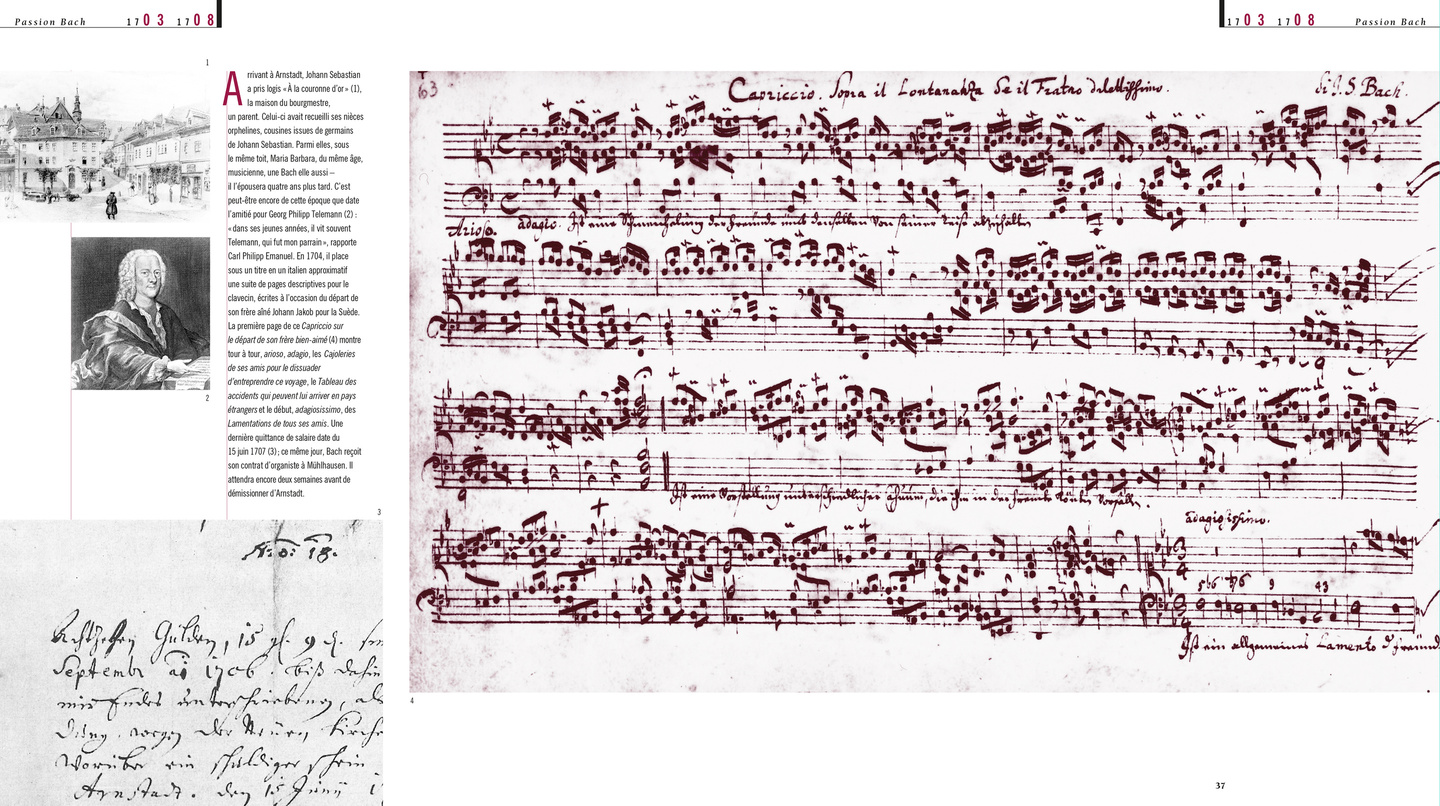 Passion Bach 1703 1708
1703 1708 Passion Bach
1
Arrivant à Arnstadt, Johann Sebastian
a pris logis « À la couronne d'or » (1),
la maison du bourgmestre,
un parent. Celui-ci avait recueilli ses nièces
orphelines, cousines issues de germains
de Johann Sebastian. Parmi elles, sous
le même toit, Maria Barbara, du même âge,
musicienne, une Bach elle aussi –
il l'épousera quatre ans plus tard. C'est
peut-être encore de cette époque que date
l'amitié pour Georg Philipp Telemann (2) :
« dans ses jeunes années, il vit souvent
Telemann, qui fut mon parrain », rapporte
Carl Philipp Emanuel. En 1704, il place
sous un titre en un italien approximatif
une suite de pages descriptives pour le
clavecin, écrites à l'occasion du départ de
son frère aîné Johann Jakob pour la Suède.
La première page de ce Capriccio sur
le départ de son frère bien-aimé (4) montre
tour à tour, arioso, adagio, les Cajoleries
de ses amis pour le dissuader
d'entreprendre ce voyage, le Tableau des
accidents qui peuvent lui arriver en pays
étrangers et le début, adagiosissimo, des
Lamentations de tous ses amis. Une
dernière quittance de salaire date du
15 juin 1707 (3) ; ce même jour, Bach reçoit
son contrat d'organiste à Mühlhausen. Il
attendra encore deux semaines avant de
démissionner d'Arnstadt.
2
3
No: 18.
Gülden, 15 gl. 9 d.
Septembr ao 1706. biß dahin
mir Endes unterschriebenen,
wegen der Neüen Kirche
Worüber ein schuldiger schein
Arnstadt. den 15 Junÿ
63
Capriccio. Sopra il Lontananza de il Fratro dilettissimo. di J. S. Bach.
Arioso. adagio. Ist eine Schmeichelung der Freunde umb denselben von seiner Reise abzuhalten
Ist eine Vorstellung unterschiedlicher Casuum, die ihm in der frembde könten vorfallen.
adagiosissimo.
9 43
Ist ein allgemeines Lamento d Freunde
4
37